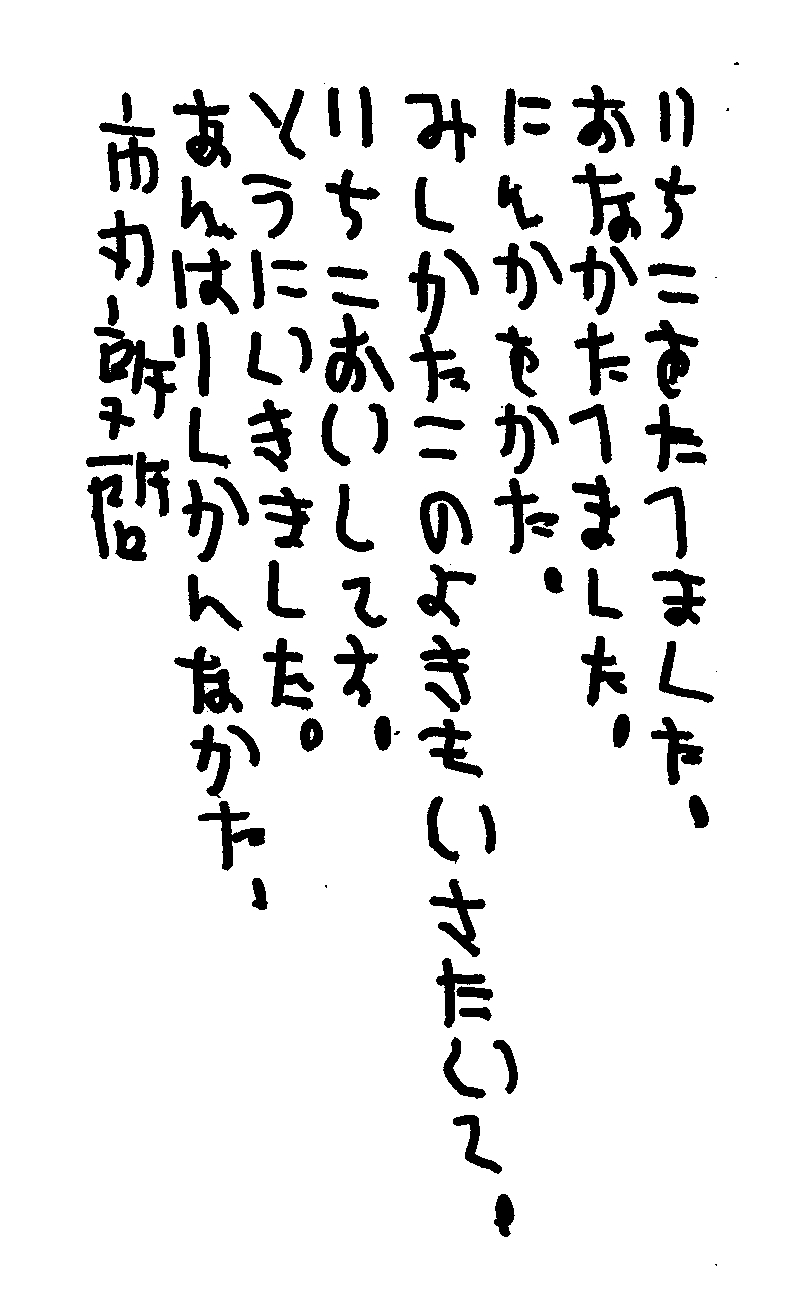 いちこをたてました。
おなかたてました。
にんかをかた。
みしかたこのよきもいさたいて。
いちこおいしてす。
とうにいききした。
あんはりしかんなかた。